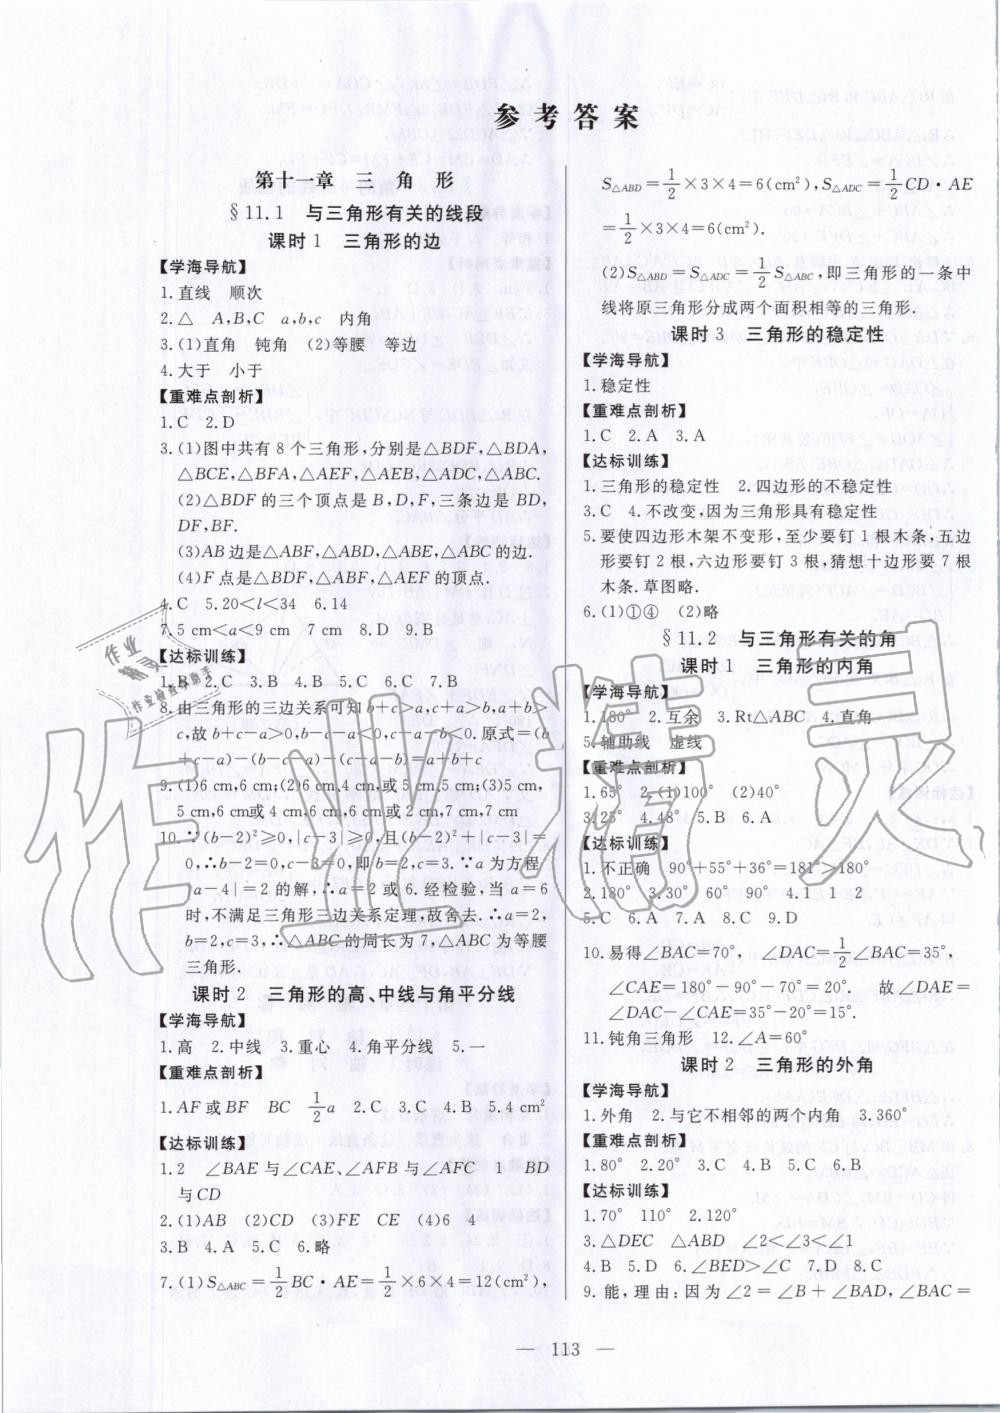 参考答案
第十一章 三 角 形
§11.1 与三角形有关的线段
课时1 三角形的边
【学海导航】
1.直线 顺次
2.△ A,B,C a,b,c 内角
3.(1)直角 钝角 (2)等腰 等边
4.大于 小于
【重难点剖析】
1.C 2.D
3.(1)图中共有8个三角形,分别是△BDF,△BDA,
△BCE,△BFA,△AEF,△AEB,△ADC,△ABC.
(2)△BDF的三个顶点是B,D,F,三条边是BD,
DF,BF.
(3)AB边是△ABF,△ABD,△ABE,△ABC的边.
(4)F点是△BDF,△ABF,△AEF的顶点.
4.C 5.20<l<34 6.14
7.5 cm<a<9 cm 7 cm 8.D 9.B
【达标训练】
1.B 2.C 3.B 4.B 5.C 6.C 7.B
8.由三角形的三边关系可知b+c>a,c+a>b,a+b>
c,故b+c-a>0,b-c-a<0,c-a-b<0.原式=(b
+c-a)-(b-c-a)-(c-a-b)=a+b+c
9.(1)6 cm,6 cm;(2)6 cm,4 cm,或5 cm,5 cm;(3)5 cm,
5 cm,6 cm或4 cm,6 cm,6 cm或2 cm,7 cm,7 cm
10.∵(b-2)²≥0,|c-3|≥0,且(b-2)²+|c-3|=
0,∴b-2=0,c-3=0,即b=2,c=3.∵a为方程
|a-4|=2的解,∴a=2或6.经检验,当a=6
时,不满足三角形三边关系定理,故舍去.∴a=2,
b=2,c=3,∴△ABC的周长为7,△ABC为等腰
三角形.
课时2 三角形的高、中线与角平分线
【学海导航】
1.高 2.中线 3.重心 4.角平分线 5.一
【重难点剖析】
1.AF或BF BC 1/2a 2.C 3.C 4.B 5.4 cm²
【达标训练】
1.2 ∠BAE与∠CAE、∠AFB与∠AFC 1 BD
与CD
2.(1)AB (2)CD (3)FE CE (4)6 4
3.B 4.A 5.C 6.略
7.(1)S△ABC=1/2BC·AE=1/2×6×4=12(cm²),
S△ABD=1/2×3×4=6(cm²),S△ADC=1/2CD·AE
=1/2×3×4=6(cm²).
(2)S△ABD=S△ADC=1/2S△ABC,即三角形的一条中
线将原三角形分成两个面积相等的三角形.
课时3 三角形的稳定性
【学海导航】
1.稳定性
【重难点剖析】
1.C 2.A 3.A
【达标训练】
1.三角形的稳定性 2.四边形的不稳定性
3.C 4.不改变,因为三角形具有稳定性
5.要使四边形木架不变形,至少要钉1根木条,五边
形要钉2根,六边形要钉3根,猜想十边形要7根
木条.草图略.
6.(1)①④ (2)略
§11.2 与三角形有关的角
课时1 三角形的内角
【学海导航】
1.180° 2.互余 3.Rt△ABC 4.直角
5.辅助线 虚线
【重难点剖析】
1.65° 2.(1)100° (2)40°
3.25° 4.48° 5.B 6.A
【达标训练】
1.不正确 90°+55°+36°=181°>180°
2.180° 3.30° 60° 90° 4.1 1 2
5.C 6.A 7.A 8.C 9.D
10.易得∠BAC=70°, ∠DAC=1/2∠BAC=35°,
∠CAE=180°-90°-70°=20°. 故∠DAE=
∠DAC-∠CAE=35°-20°=15°.
11.钝角三角形 12.∠A=60°
课时2 三角形的外角
【学海导航】
1.外角 2.与它不相邻的两个内角 3.360°
【重难点剖析】
1.80° 2.20° 3.C 4.B 5.C 6.B
【达标训练】
1.70° 110° 2.120°
3.△DEC △ABD ∠2<∠3<∠1
4.B 5.D 6.∠BED>∠C 7.D 8.C
9.能,理由:因为∠2=∠B+∠BAD,∠BAC=
— 113 —
作业精灵